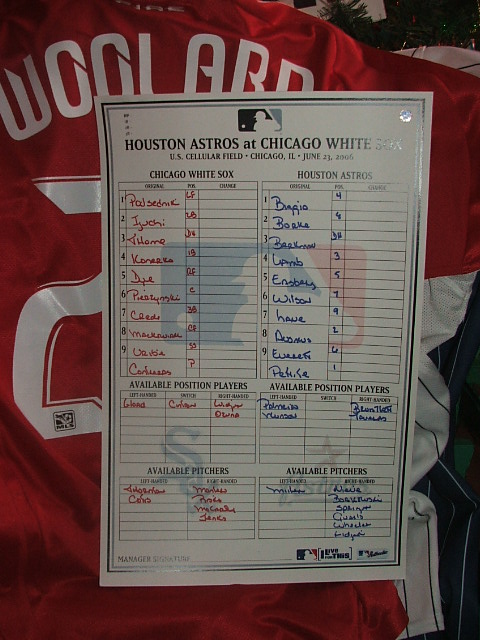 WOOLARD
HOUSTON ASTROS at CHICAGO WHITE SOX
U.S. CELLULAR FIELD • CHICAGO, IL • JUNE 23, 2006
CHICAGO WHITE SOX HOUSTON ASTROS
ORIGINAL POS. CHANGE ORIGINAL POS. CHANGE
1 Podsednik LF 1 Biggio 4
2 Iguchi 2B 2 Burke 8
3 Thome DH 3 Berkman DH
4 Konerko 1B 4 Lamb 3
5 Dye RF 5 Ensberg 5
6 Pierzynski C 6 Wilson 7
7 Crede 3B 7 Lane 9
8 Mackowiak CF 8 Ausmus 2
9 Uribe SS 9 Everett 6
Contreras P Pettitte 1
AVAILABLE POSITION PLAYERS AVAILABLE POSITION PLAYERS
LEFT-HANDED SWITCH RIGHT-HANDED LEFT-HANDED SWITCH RIGHT-HANDED
Gload Cintron Widger Palmeiro
Ozuna Munson Taveras
AVAILABLE PITCHERS AVAILABLE PITCHERS
LEFT-HANDED RIGHT-HANDED LEFT-HANDED RIGHT-HANDED
Thornton Miller Nieve
Cotts Borkowski
McCarthy Springer
Jenks Qualls
Wheeler
Lidge
MANAGER SIGNATURE
LIVE FOR THIS
MLS